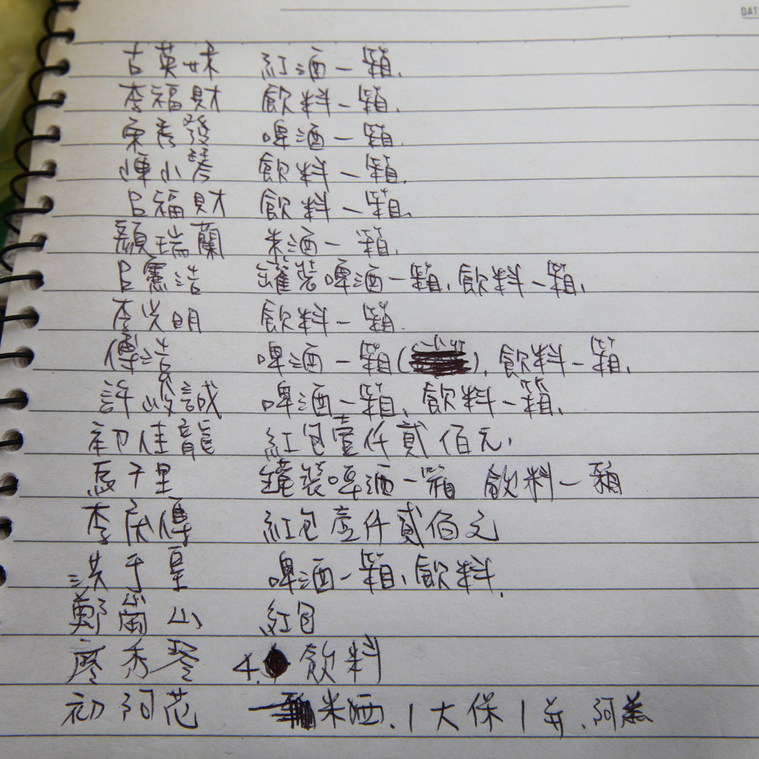 古英妹 紅酒一箱.
李福財 飲料一箱.
秀發 啤酒一箱.
陳小琴 飲料一箱.
呂福財 飲料一箱.
顏瑞蘭 米酒一箱.
呂憲浩 罐裝啤酒一箱.飲料一箱.
李光明 飲料一箱.
傅浩 啤酒一箱( ).飲料一箱.
許峻誠 啤酒一箱、飲料一箱.
初佳龍 紅包壹仟貳佰元.
馬千里 罐裝啤酒一箱 飲料一箱
李 傳 紅包壹仟貳佰元
洪于皇 啤酒一箱、飲料.
鄭 山 紅包
廖秀琴 4. 飲料
初阿范 米酒.1大保1 .阿